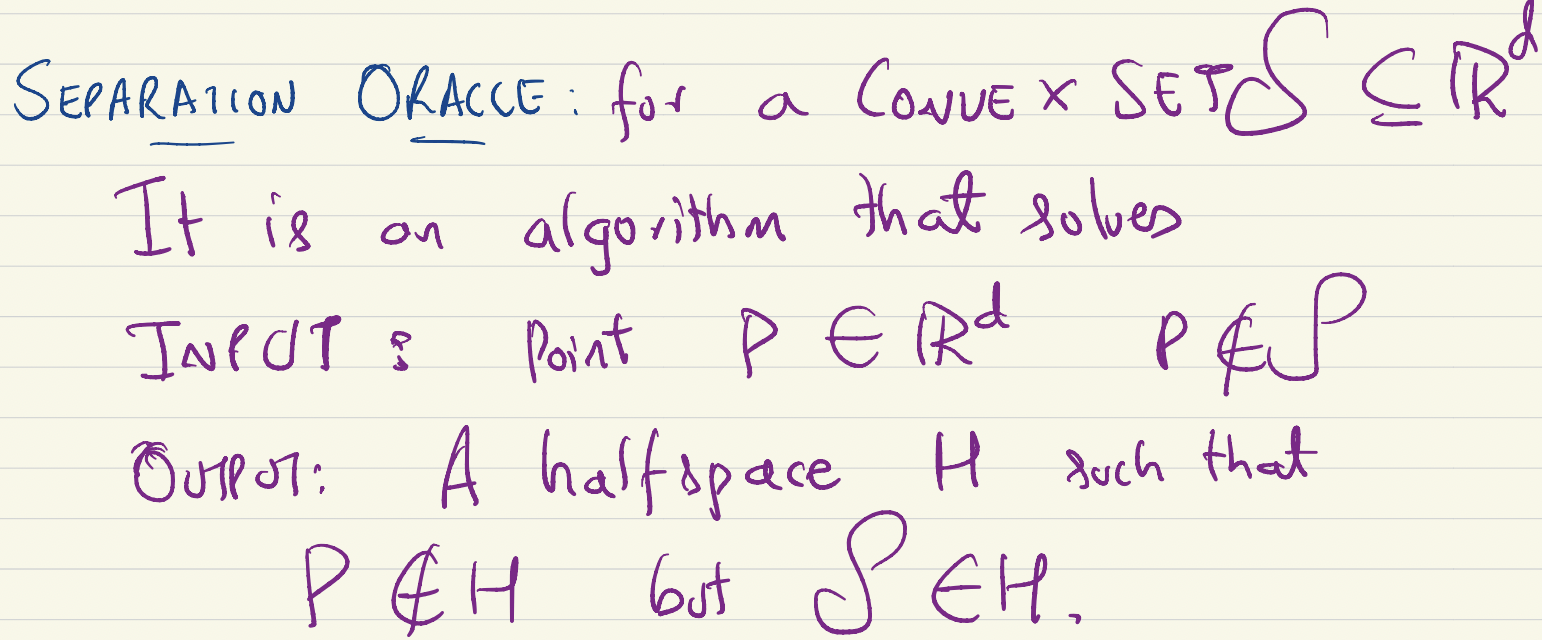 SEPARATION ORACLE: for a CONVEX SET S ⊆ ℝᵈ
It is an algorithm that solves
INPUT: Point P ∈ ℝᵈ P ∉ S
OUTPUT: A halfspace H such that
P ∉ H but S ∈ H.